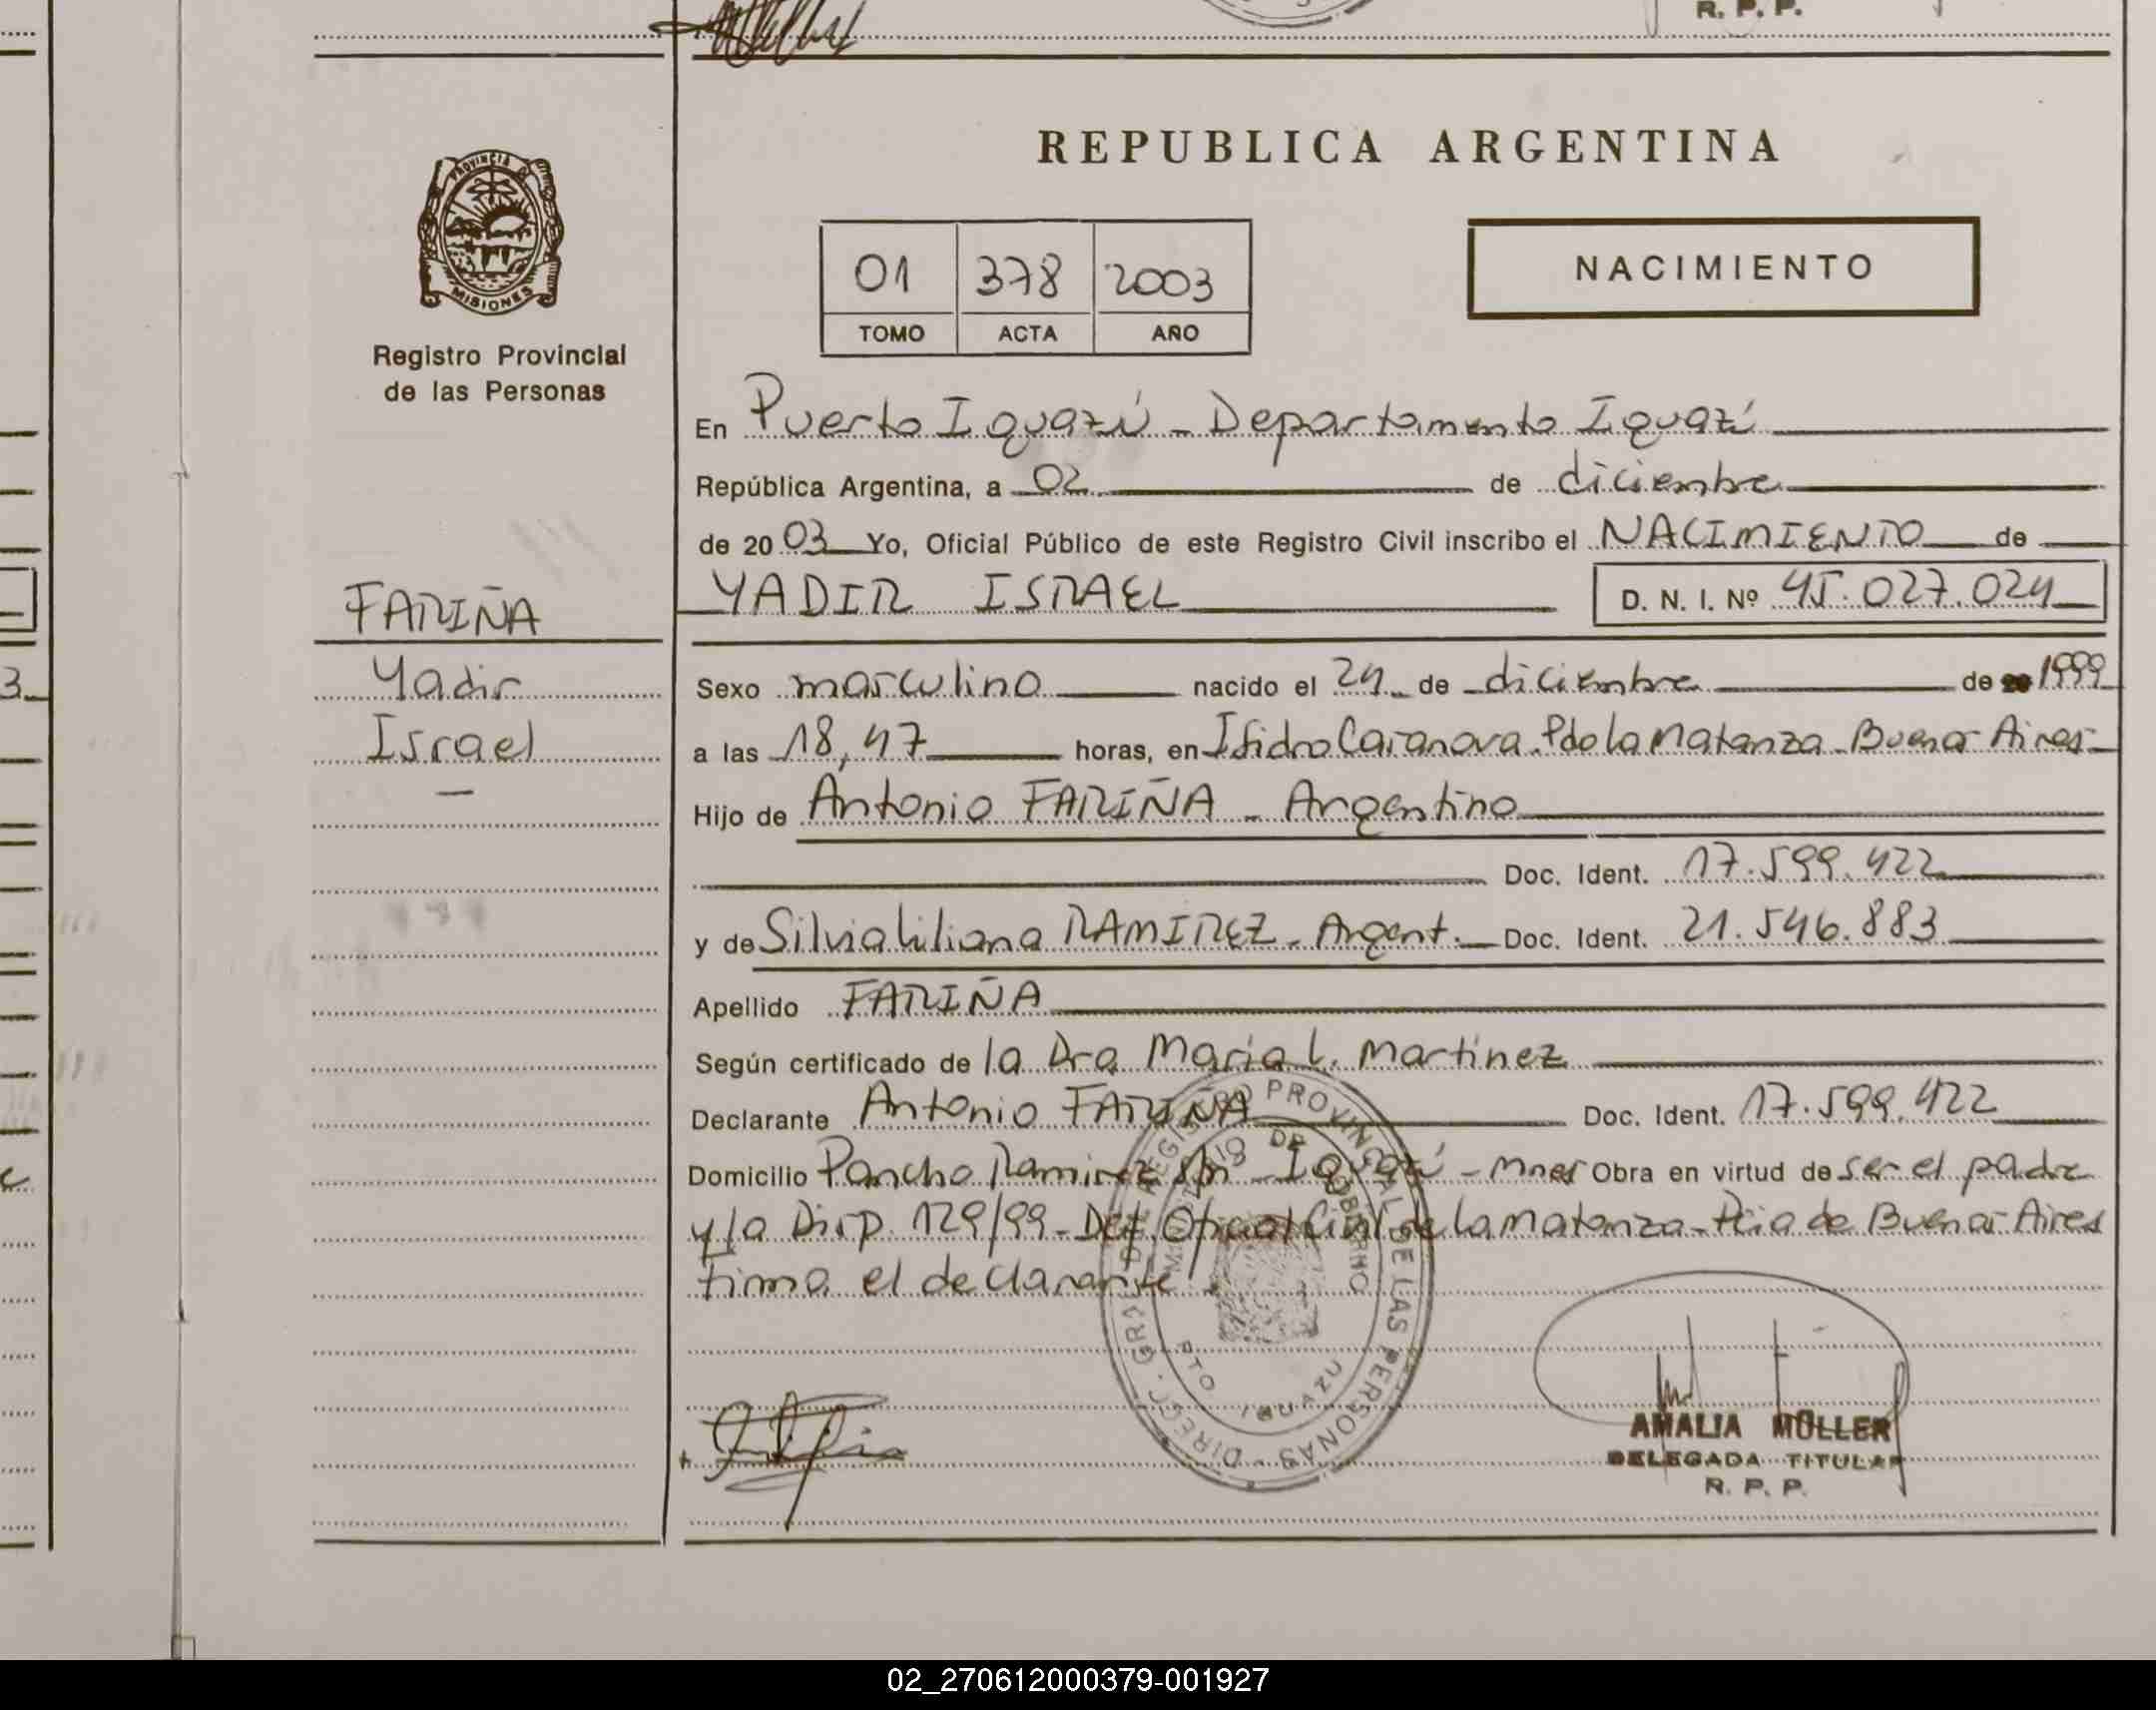 R. P. P.
PROVINCIA DE
MISIONES
Registro Provincial
de las Personas
FARIÑA
Yadir
Israel
REPUBLICA ARGENTINA
01 378 2003
TOMO ACTA AÑO
NACIMIENTO
En Puerto Iguazú - Departamento Iguazú
República Argentina, a 02 de diciembre
de 2003 Yo, Oficial Público de este Registro Civil inscribo el NACIMIENTO de
YADIR ISRAEL D. N. I. Nº 45.027.024
Sexo masculino nacido el 24 de diciembre de 1999
a las 18,47 horas, en Isidro Casanova. Pdo la Matanza - Buenos Aires -
Hijo de Antonio FARIÑA - Argentino
Doc. Ident. 17.599.422
y de Silvia Liliana RAMIREZ - Argent. Doc. Ident. 21.546.883
Apellido FARIÑA
Según certificado de la Dra Maria L. Martinez
Declarante Antonio FARIÑA Doc. Ident. 17.599.422
Domicilio Pancho Ramirez s/n - Iguazú - Mnes Obra en virtud de ser el padre
y la Disp. 129/99 - Del. Oficial Civil de La Matanza - Pcia de Buenos Aires
firma el declarante.
DIRECC. GRAL. DEL REGISTRO PROVINCIAL DE LAS PERSONAS
MINISTERIO DE GOBIERNO
PTO IGUAZU
AMALIA MÜLLER
DELEGADA TITULAR
R. P. P.
02_270612000379-001927